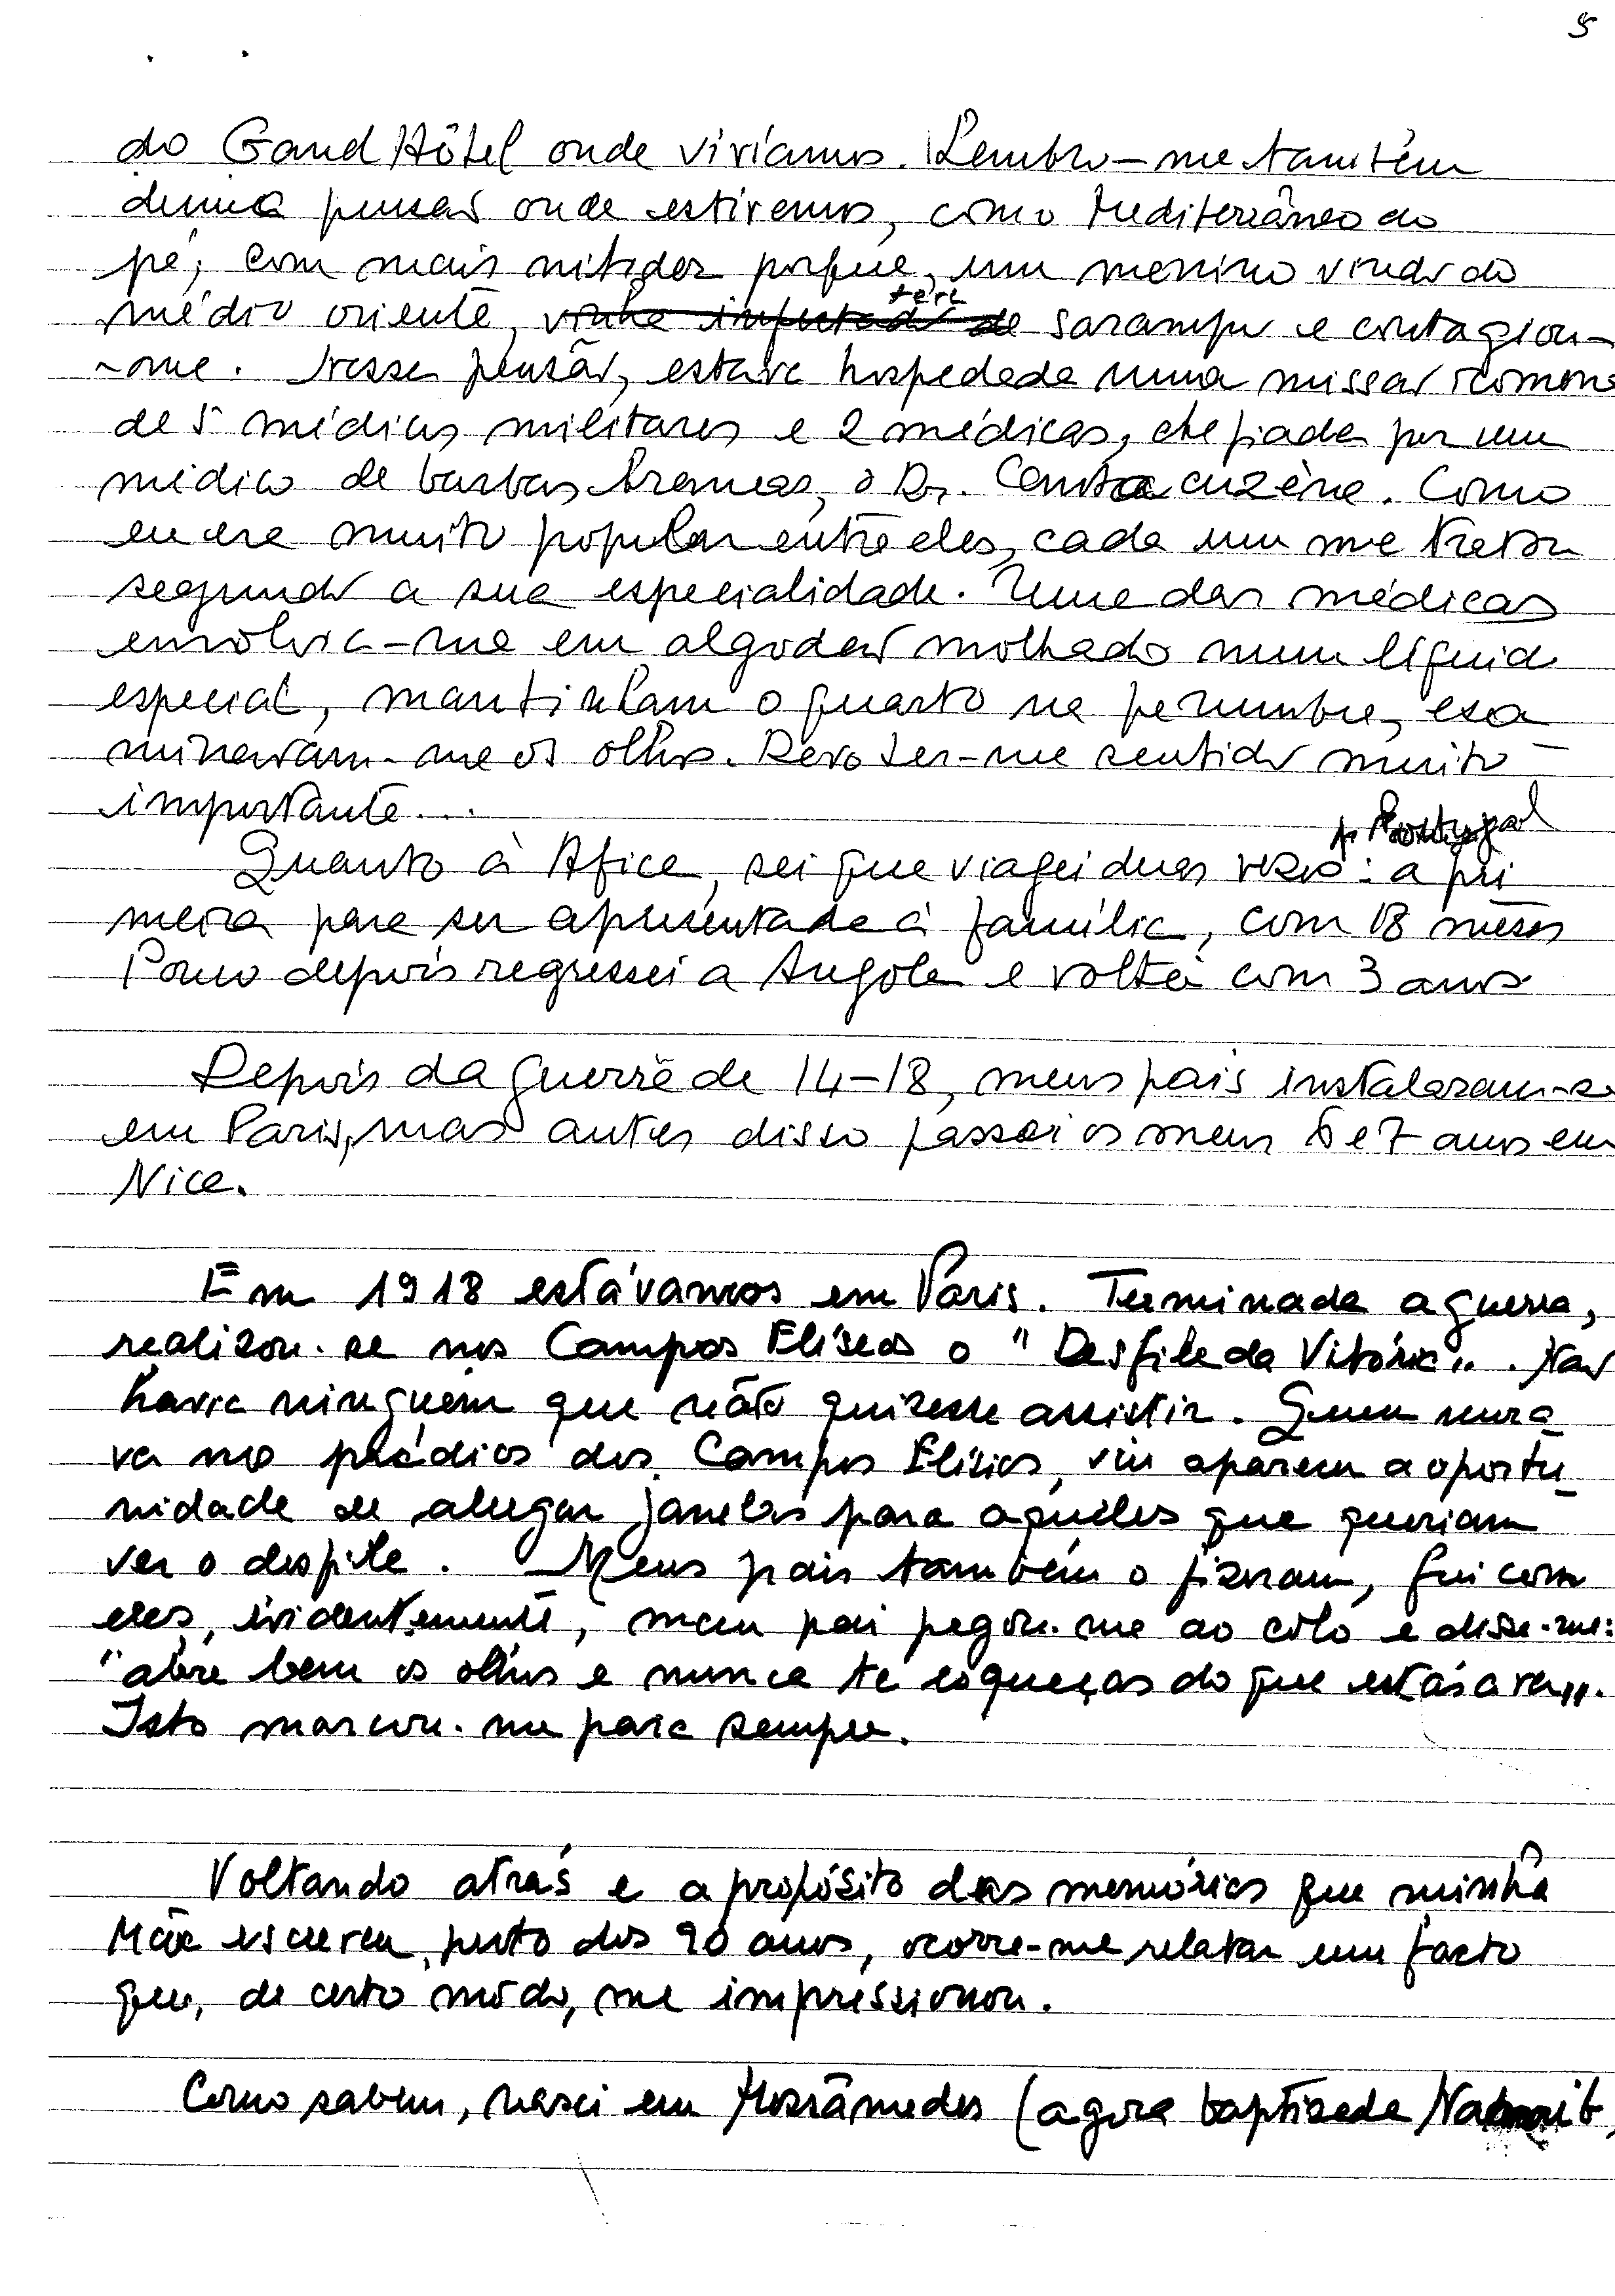 5
do Gand Hôtel onde vivíamos. Lembro-me também
duma pensão onde estivemos, com o Mediterrâneo ao
pé, com mais nitidez porque, um menino vindo do
médio oriente, vinha infectado de teve sarampo e contagiou-
-me. Nessa pensão, estava hospedada uma missão romena
de 5 médicos militares e 2 médicas, chefiada por um
médico de barbas brancas, o Dr. Cantacuzène. Como
eu era muito popular entre eles, cada um me tratou
segundo a sua especialidade. Uma das médicas
envolvia-me em algodão molhado num líquido
especial, mantinham o quarto na penumbra, exa-
minavam-me os olhos. Devo ter-me sentido muito
importante...
Quanto à Africa, sei que viagei duas vezes p. Portugal: a pri
meira para ser apresentada à família, com 18 mêses
Pouco depois regressei a Angola e voltei com 3 anos
Depois da guerra de 14-18, meus pais instalaram-se
em Paris, mas antes disso passei os meus 6 e 7 anos em
Nice.
Em 1918 estávamos em Paris. Terminada a guerra,
realizou-se nos Campos Elíseos o "Desfile da Vitória". Não
havia ninguém que não quizesse assistir. Quem mora-
va nos prédios dos Campos Elísios, viu aparecer a oportu-
nidade de alugar janelas para aqueles que queriam
ver o desfile. Meus pais também o fizeram, fui com
eles, evidentemente, meu pai pegou-me ao colo e disse-me:
"abre bem os olhos e nunca te esqueças do que estás a ver".
Isto marcou-me para sempre.
Voltando atrás e a propósito das memórias que minha
Mãe escreveu, perto dos 90 anos, ocorre-me relatar um facto
que, de certo modo, me impressionou.
Como sabem, nasci em Mossâmedes (agora baptizada Namib,